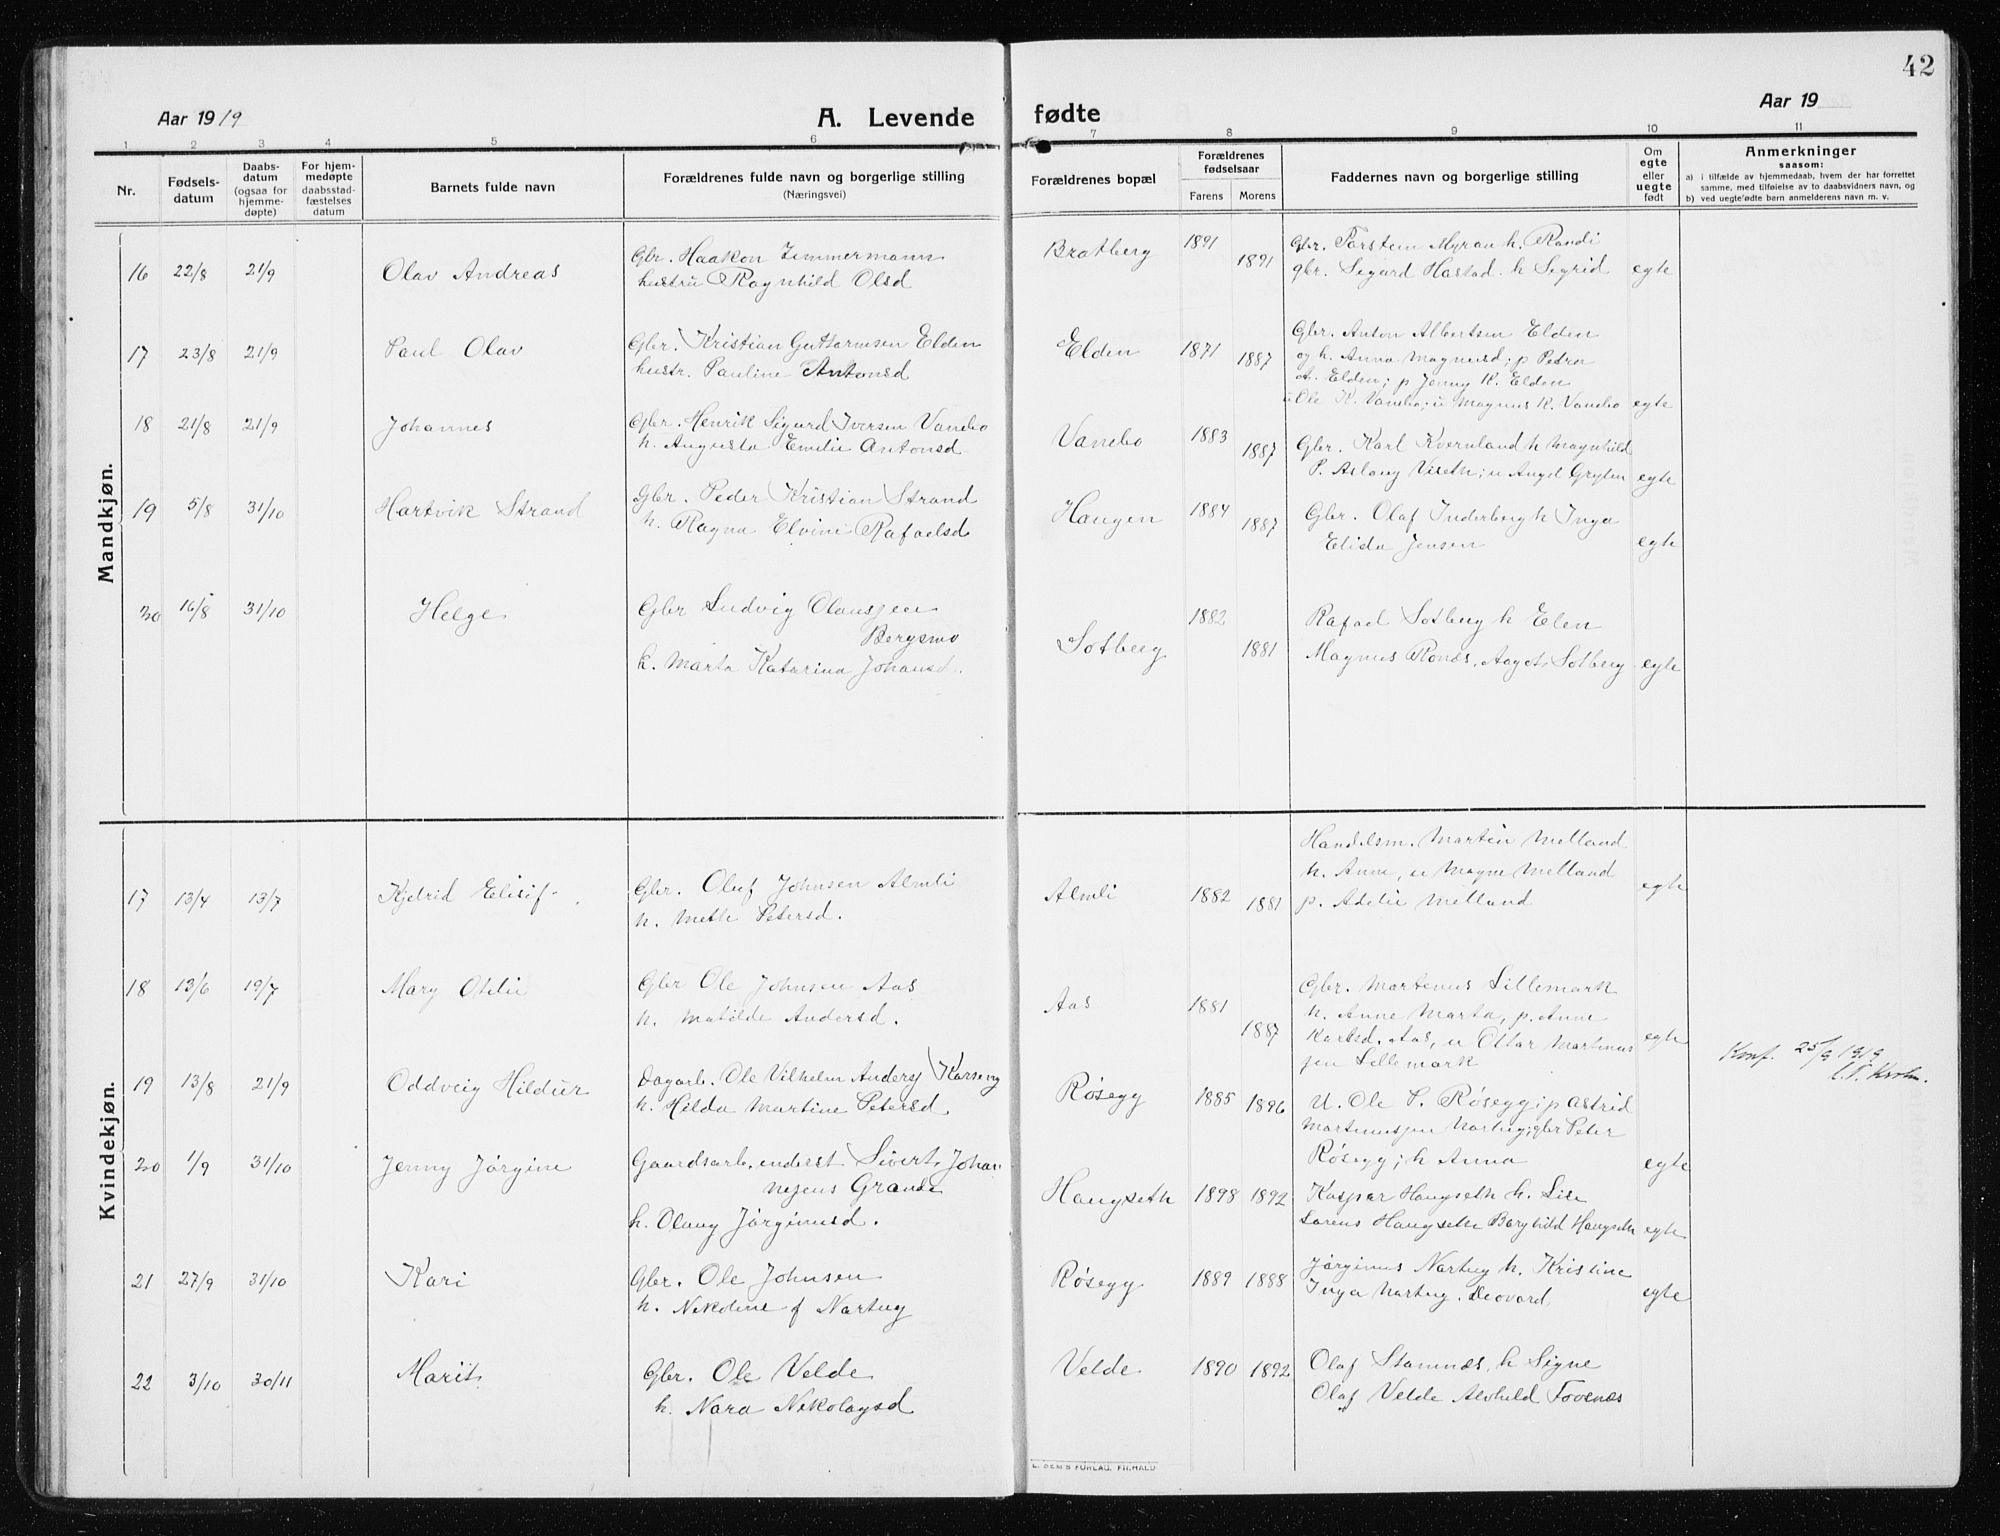 42
Aar 1919
A. Levende fødte
Aar 19
1 2 3 4 5 6 7 8 9 10 11
Nr.
Fødsels-
datum
Daabs-
datum
(ogsaa for
hjemme-
døpte)
For hjem-
medøpte
daabsstad-
fæstelses
datum
Barnets fulde navn
Forældrenes fulde navn og borgerlige stilling
(Næringsvei)
Forældrenes bopæl
Forældrenes
fødselsaar
Farens Morens
Faddernes navn og borgerlige stilling
Om
egte
eller
uegte
født
Anmerkninger
saasom:
a) i tilfælde av hjemmedaab, hvem der har forrettet
samme, med tilføielse av to daabsvidners navn, og
b) ved uegte fødte børn anmelderens navn m. v.
Mandkjøn.
16 22/8 21/9 Olav Andreas
Gbr. Haakon Zimmermann
hustru Ragnhild Olsd
Bratberg 1891 1891
Gbr. Torstein Myran h. Randi
gbr. Sigurd Hastad h Sigrid egte
17 23/8 21/9 Paul Olav
Gbr. Kristian Guttormsen Elden
hustr. Pauline Antonsd
Elden 1871 1887
Gbr. Anton Albertsen Elden
og h. Anna Magnusd; p Petra
A. Elden; p Jenny K. Elden
u Ole K. Vanebo; u Magnus K. Vanebo egte
18 21/8 21/9 Johannes
Gbr. Henrik Sigurd Iversen Vanebo
h. Augusta Emilie Antonsd
Vanebo 1883 1887
Gbr. Karl Kvernland h Magnhild
P. Aslaug Viseth; u Augst Gryten egte
19 5/8 31/10 Hartvik Strand
Gbr. Peder Kristian Strand
h. Ragna Elvine Rafaelsd
Haugen 1884 1887
Gbr. Olaf Inderberg h Inga
Elida Jensen egte
20 16/8 31/10 Helge
Gbr Ludvig Olaussen
Bergsmo
h. Marta Katarina Johansd.
Solberg 1882 1881
Rafael Solberg h Elen
Magnus Ronæs, Aagot Solberg egte
Kvindekjøn.
17 13/4 13/7 Kjelrid Elisif
Gbr. Oluf Johnsen Almli
h. Meth Petersd.
Almli 1882 1881
Handelsm. Martin Melland
h. Anne, u Magne Melland
p. Adelie Melland egte
18 13/6 19/7 Mary Otilie
Gbr Ole Johnsen Aas
h. Matilde Andersd.
Aas 1881 1887
Gbr. Martenus Lillemark
h. Anne Marta, p. Anne
Karlsd. Aas, u Ottar Martinus
sen Lillemark egte
Konf. 25/9 1919
19 13/8 21/9 Oddveig Hildur
Dagarb. Ole Vilhelm Anders
h. Hilda Martine Petersd
Røsegg 1885 1896
U. Ole P. Røsegg; p Astrid
Martinussen Nartug; gbr Peter
Røsegg; h Anna egte
20 1/9 31/10 Jenny Jørgine
Gaardsarb. enderst Sivert Johan
nesens Grande
h. Olaug Jørginusd.
Haugseth 1898 1892
Kaspar Haugseth h. Lise
Lorens Haugseth Borghild Haugseth egte
21 27/9 31/10 Kari
Gbr. Ole Johnsen
h. Nekoline f Nartug
Røsegg 1889 1888
Jørginus Nartug h. Kristine
Inga Nartug. Leovard egte
22 3/10 30/11 Marit
Gbr. Ole Velde
h. Nora Nikolaysd
Velde 1890 1892
Olaf Stamnæs h Signe
Olaf Velde Alvhild Fossnæs